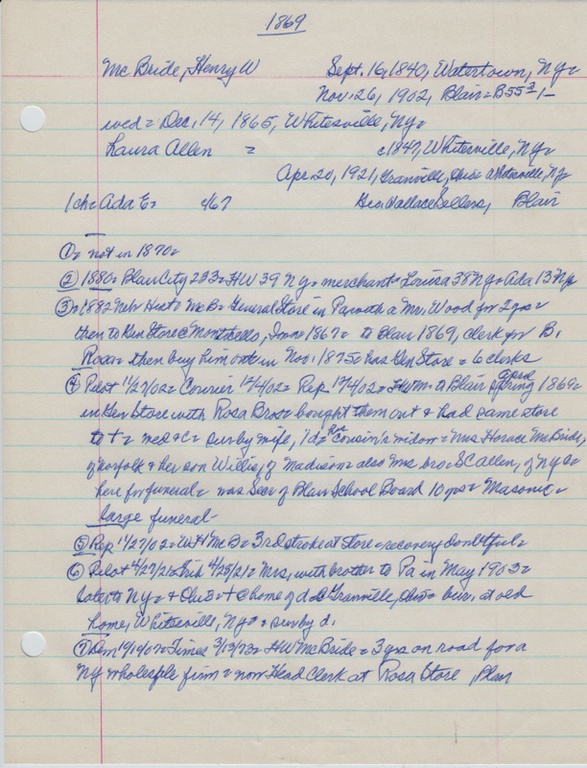 1869
McBride, Henry W Sept. 16, 1840, Watertown, Ny=
Nov. 26, 1902, Blair = B553,-
wed = Dec, 14, 1865, Whitesville, Ny=
Laura Allen = c1847, Whitesville, Ny=
Apr. 20, 1921, Granville, Ohio = Whitesville, Ny
1 ch = Ada E = c/67 Geo. Wallace Sellers, Blair
① = not in 1870 =
② 1880 = Blair City 233 = HW 39 Ny = merchant = Louisa 38 Ny = Ada 13 Ny
③ = 1882 Nebr Hist = McB = General Store in Pa with a Mr. Wood for 2 yrs =
then to Gen Store @ Monticello, Iowa 1867 = to Blair 1869, clerk for B.
Rosa = then buy him out in Nov. 1875 = has Gen Store = 6 clerks
④ Pilot 11/27/02 = Courier 12/4/02 = Rep 12/4/02 = HWM = to Blair spring 1869 =
in Gen Store with Rosa Bros = bought them out & had same store
to + = med & C = surv by wife, 1 d = cousin's widow = Mrs Horace McBride,
of Norfolk & her son Willis, of Madison = also Mrs bro = SC Allen, of Ny =
here for funeral = was Secr of Blair School Board 10 yrs = Masonic =
large funeral
⑤ Rep 11/27/02 = WH McB = 3rd stroke at store = recovery doubtful =
⑥ Pilot 4/27/21 = Trib 4/29/21 = Mrs, with brother to Pa in May 1903 =
later to Ny = & Ohio = + @ home of d @ Granville, Ohio = bur. at old
home, Whitesville, Ny = = surv by d.
⑦ = Times 3/13/73 = HW McBride = 3 yrs on road for a
Ny wholesale firm = now Head Clerk at Rosa Store, Blair